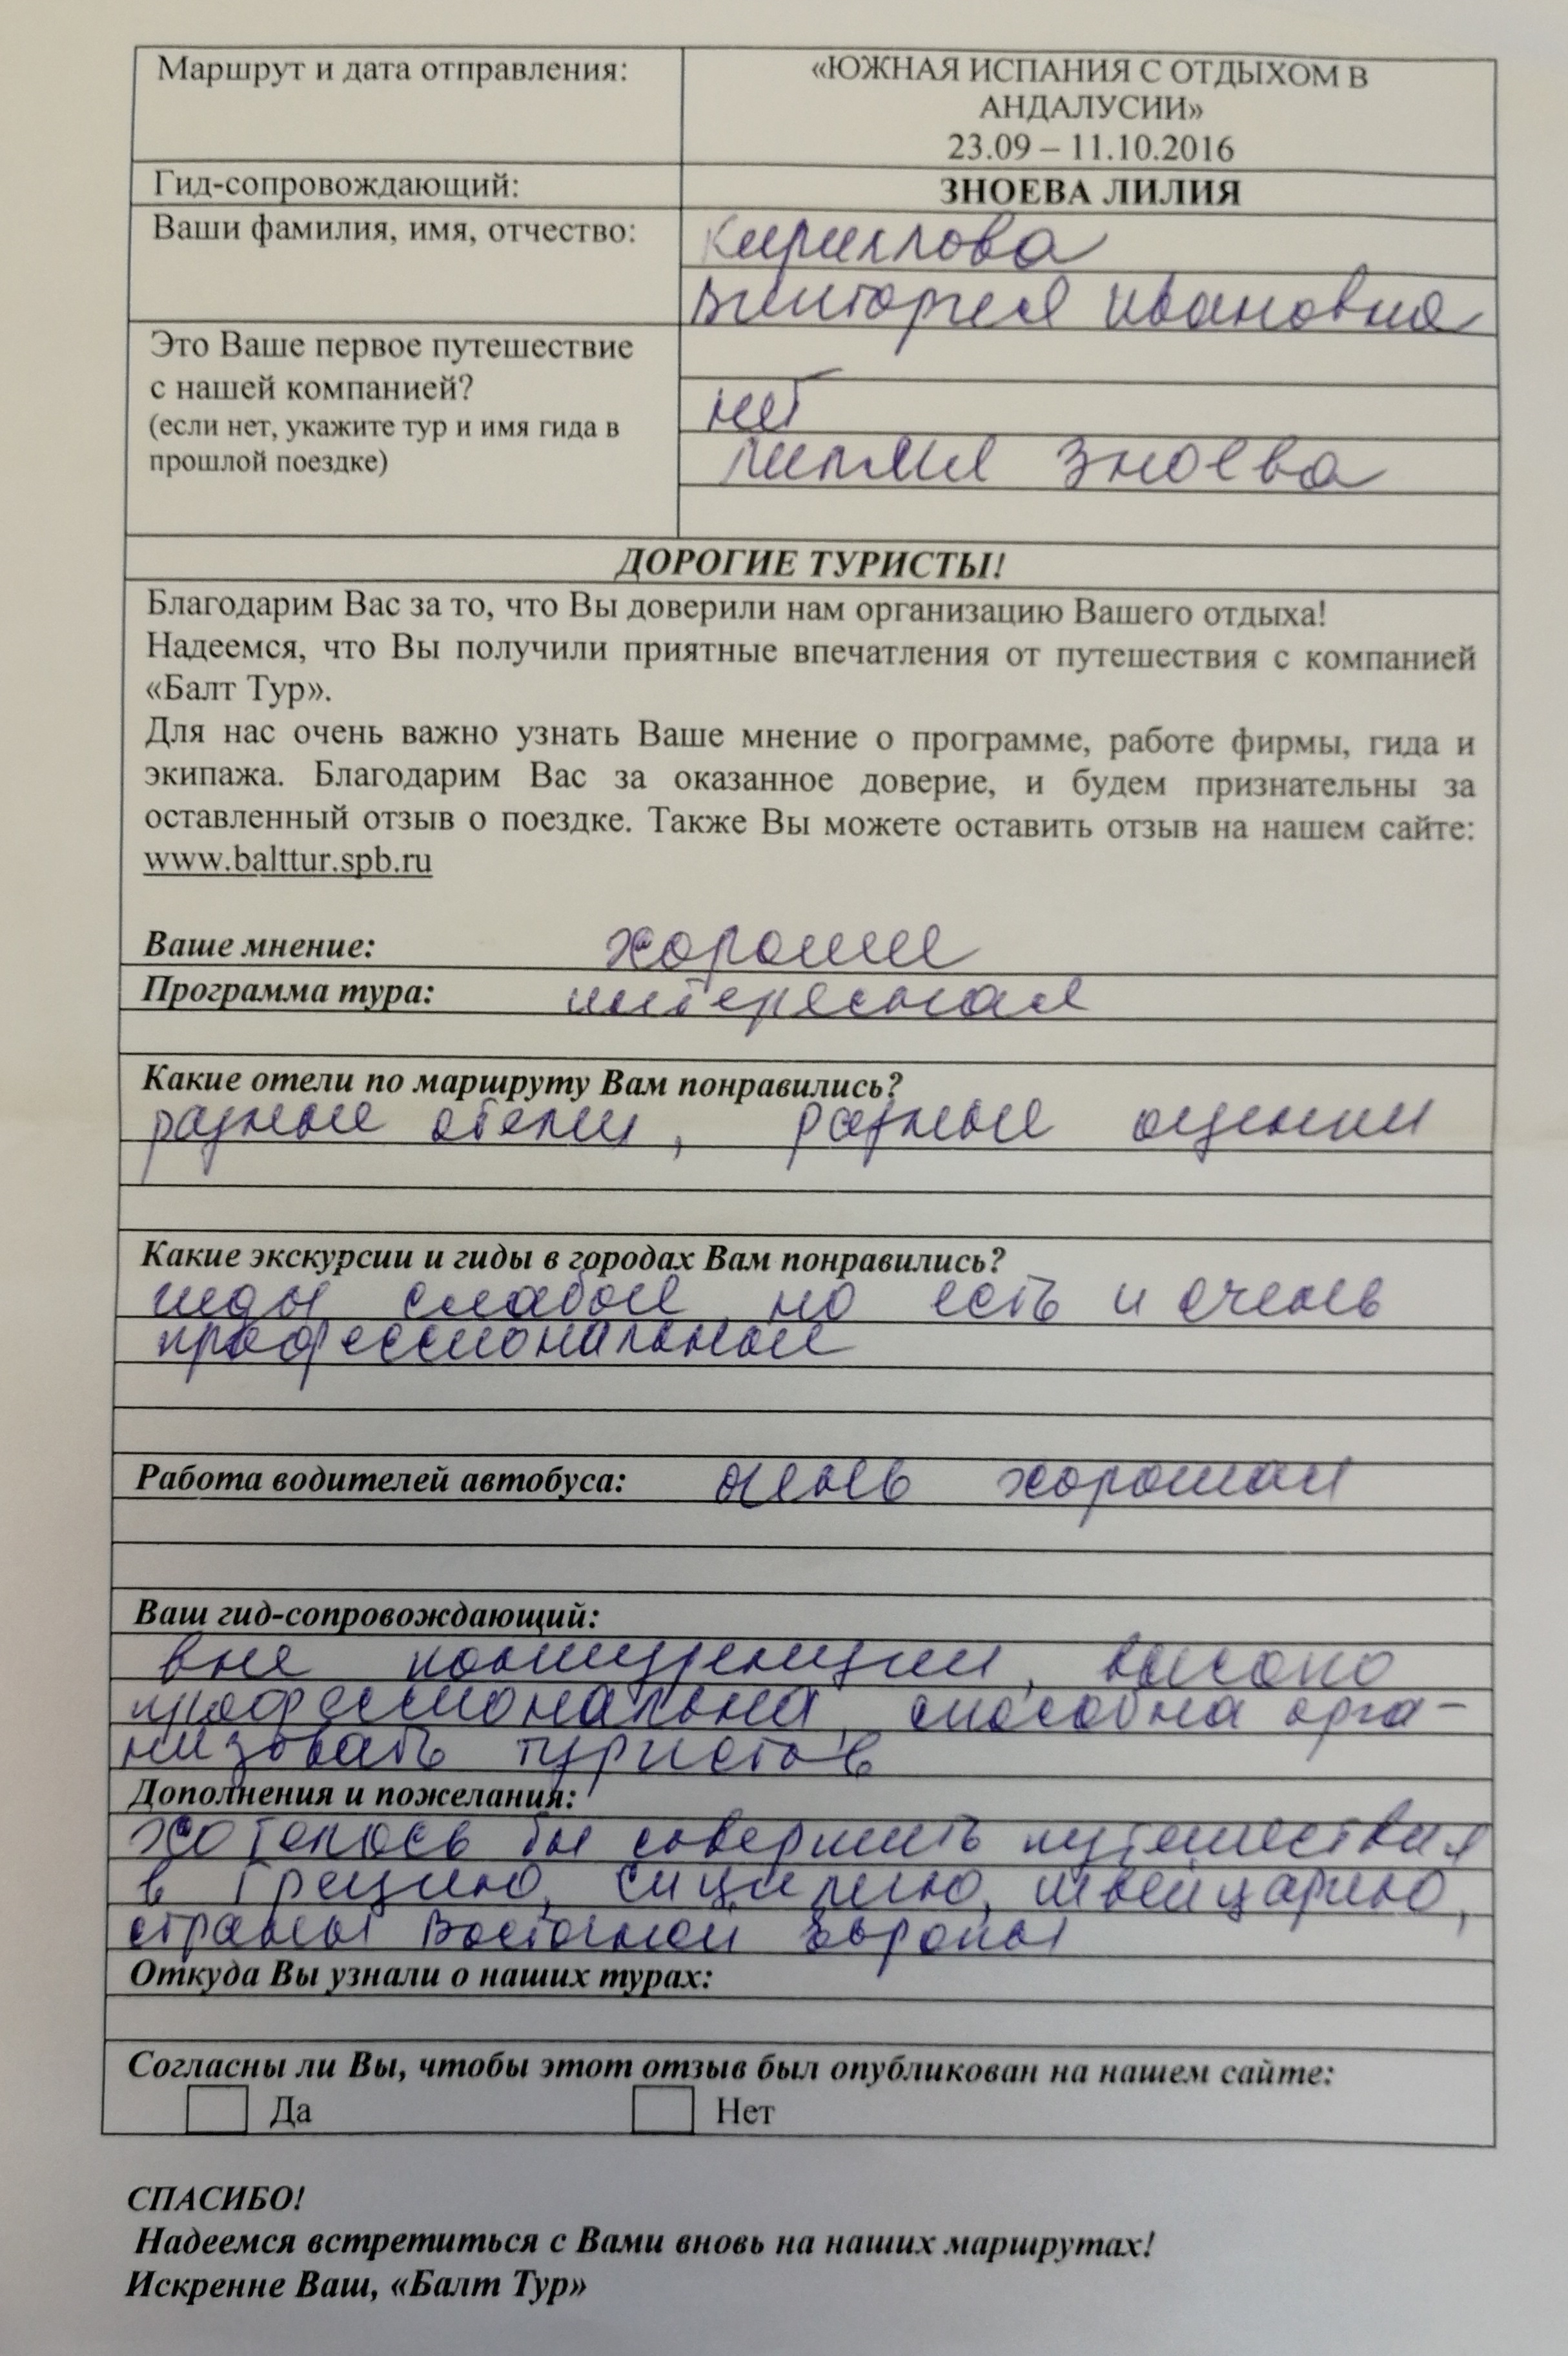 Маршрут и дата отправления:
«ЮЖНАЯ ИСПАНИЯ С ОТДЫХОМ В
АНДАЛУСИИ»
23.09 – 11.10.2016
Гид-сопровождающий:
ЗНОЕВА ЛИЛИЯ
Ваши фамилия, имя, отчество:
Кириллова
Виктория Ивановна
Это Ваше первое путешествие
с нашей компанией?
(если нет, укажите тур и имя гида в
прошлой поездке)
нет
Лилия Зноева
ДОРОГИЕ ТУРИСТЫ!
Благодарим Вас за то, что Вы доверили нам организацию Вашего отдыха!
Надеемся, что Вы получили приятные впечатления от путешествия с компанией
«Балт Тур».
Для нас очень важно узнать Ваше мнение о программе, работе фирмы, гида и
экипажа. Благодарим Вас за оказанное доверие, и будем признательны за
оставленный отзыв о поездке. Также Вы можете оставить отзыв на нашем сайте:
www.balttur.spb.ru
Ваше мнение: хорошее
Программа тура: интересная
Какие отели по маршруту Вам понравились?
разные отели, разные оценки
Какие экскурсии и гиды в городах Вам понравились?
гиды слабые, но есть и очень
профессиональные
Работа водителей автобуса: очень хорошая
Ваш гид-сопровождающий:
вне конкуренции, высоко
профессиональна, способна орга-
низовать туристов
Дополнения и пожелания:
хотелось бы совершить путешествия
в Грецию, Сицилию, Швейцарию,
страны Восточной Европы
Откуда Вы узнали о наших турах:
Согласны ли Вы, чтобы этот отзыв был опубликован на нашем сайте:
Да Нет
СПАСИБО!
Надеемся встретиться с Вами вновь на наших маршрутах!
Искренне Ваш, «Балт Тур»